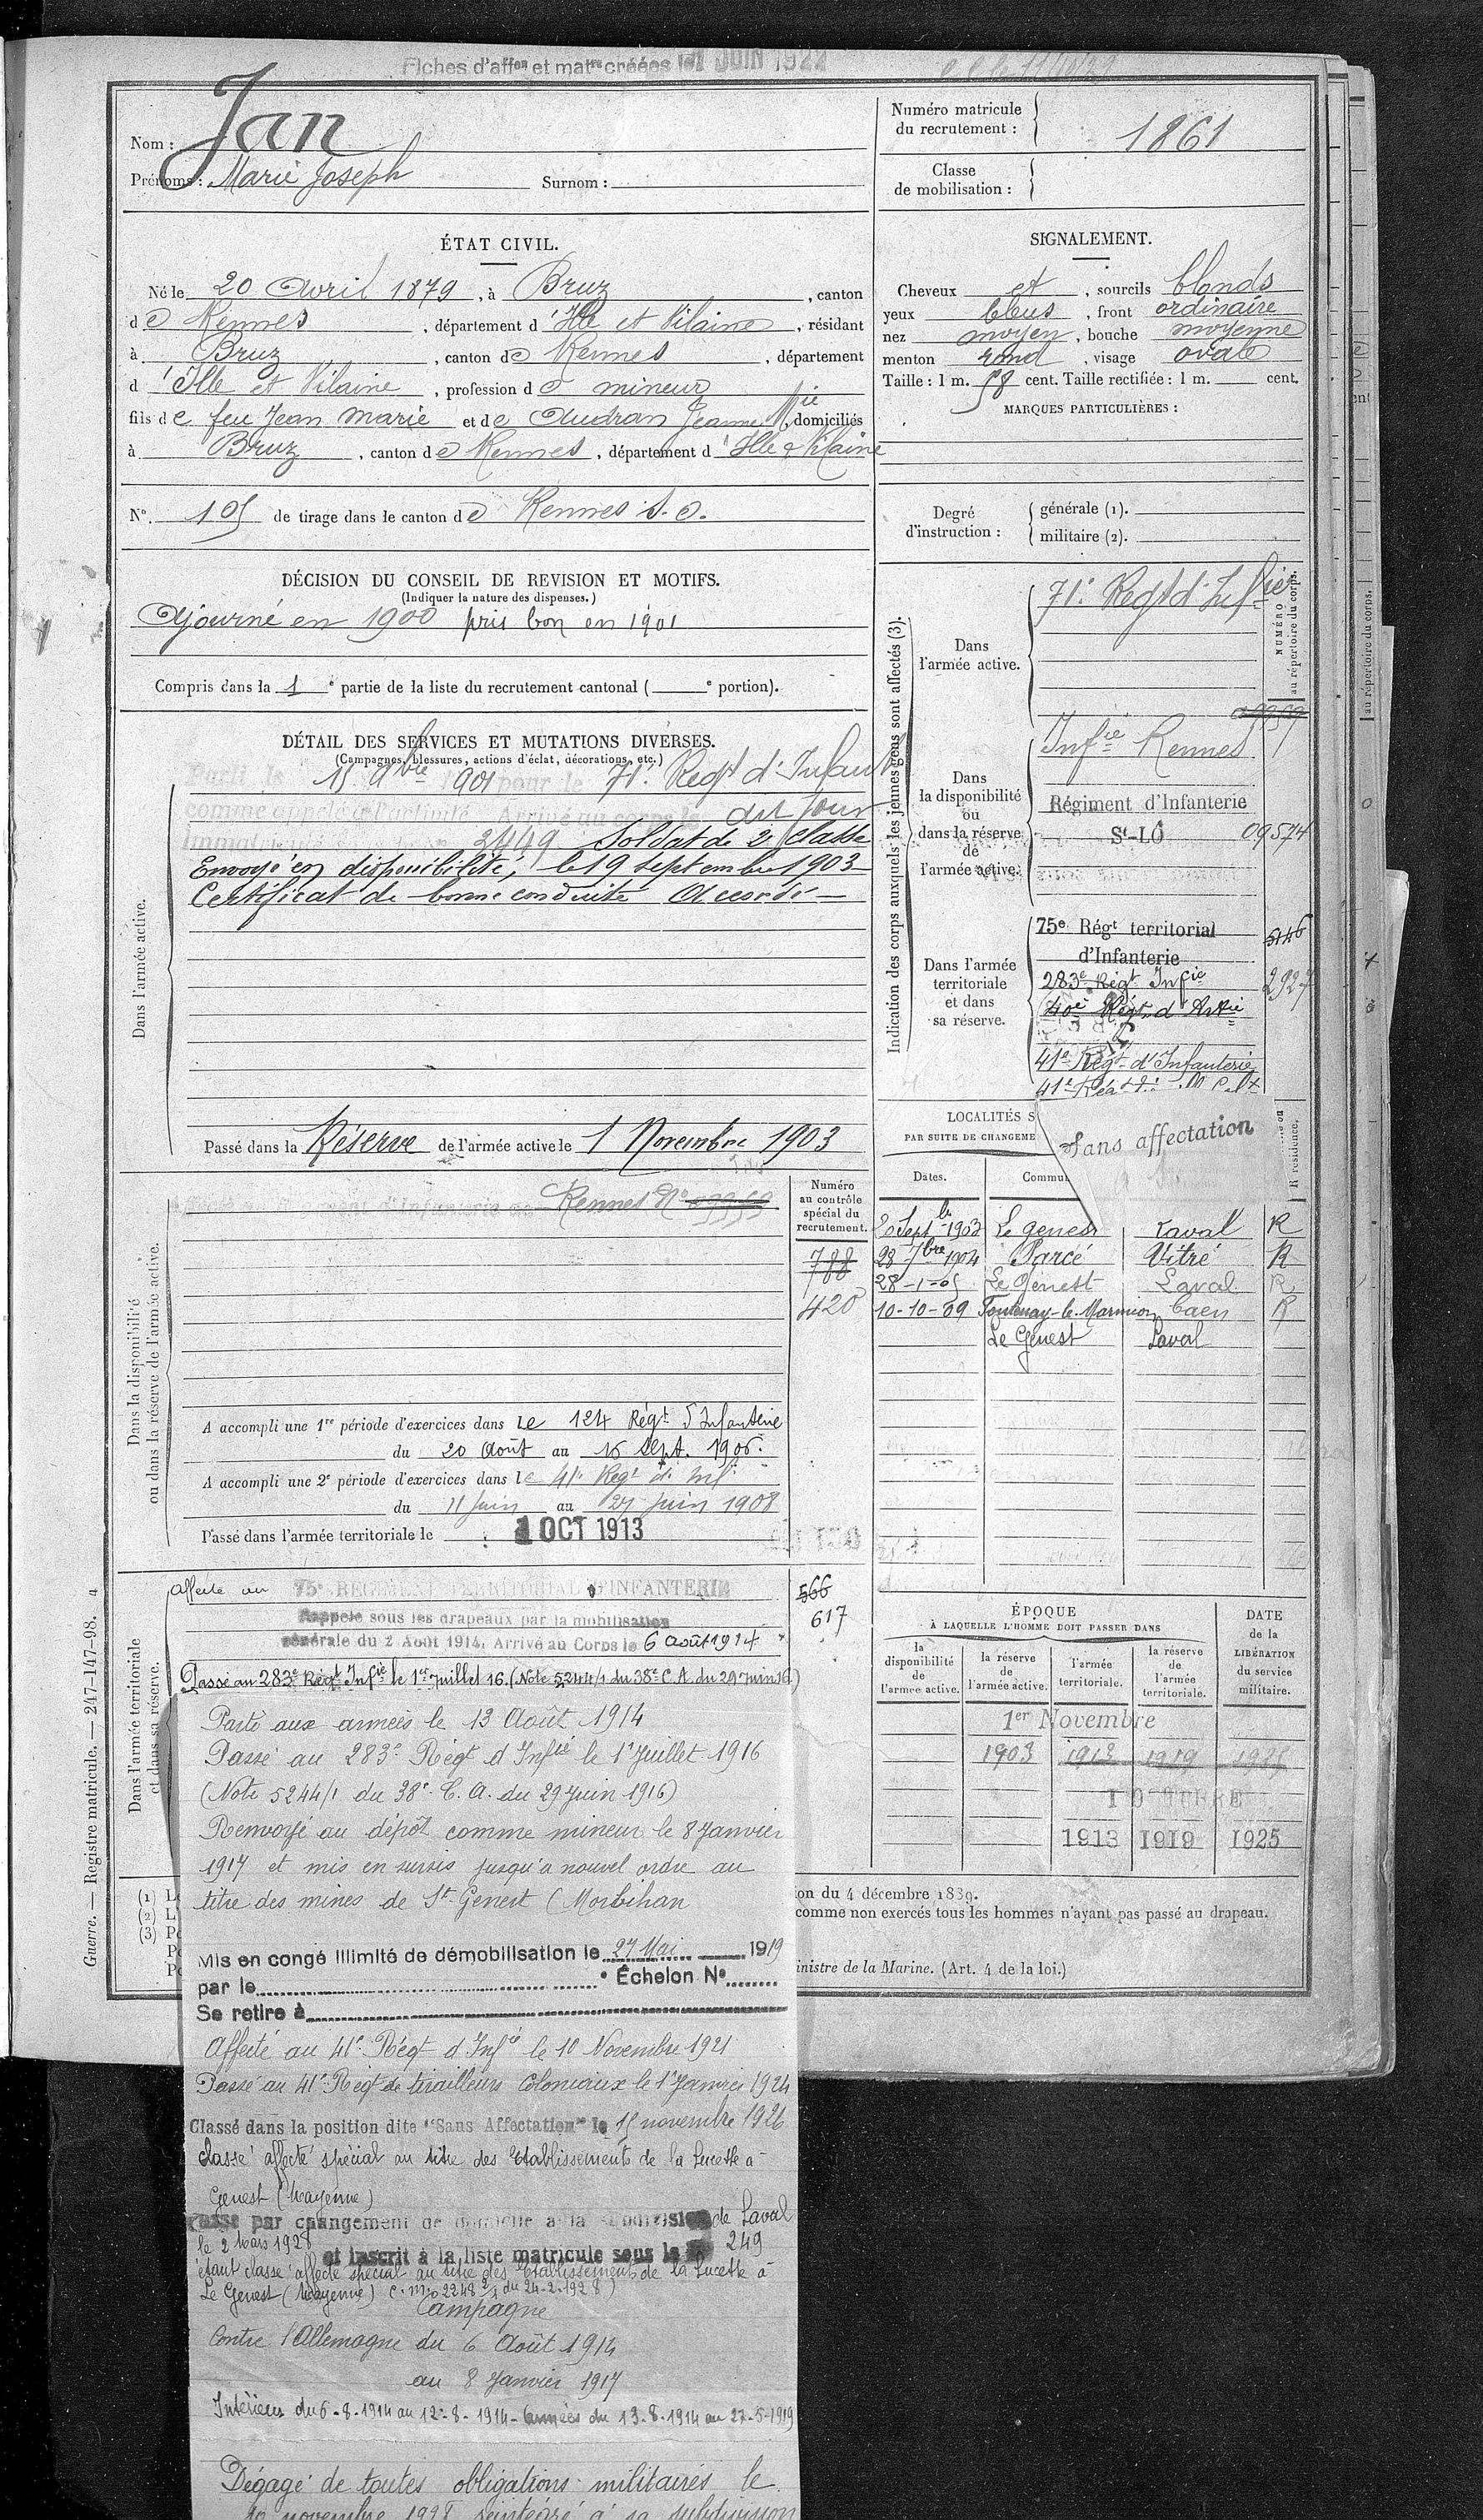 Fiches d'affon et matre créées le 1 JUIN 1922
Nom : Jan
Prénoms : Marie Joseph Surnom :
Numéro matricule du recrutement : 1861
Classe de mobilisation :
ÉTAT CIVIL.
Né le 20 Avril 1879, à Bruz, canton
de Rennes, département d'Ille et Vilaine, résidant
à Bruz, canton de Rennes, département
d'Ille et Vilaine, profession de mineur
fils de feu Jean Marie et de Audran Jeanne Mie domiciliés
à Bruz, canton de Rennes, département d'Ille & Vilaine
N° 105 de tirage dans le canton de Rennes S.O.
SIGNALEMENT.
Cheveux et, sourcils blonds
yeux bleus, front ordinaire
nez moyen, bouche moyenne
menton rond, visage ovale
Taille : 1 m. 58 cent. Taille rectifiée : 1 m. cent.
MARQUES PARTICULIÈRES :
Degré d'instruction :
générale (1).
militaire (2).
DÉCISION DU CONSEIL DE REVISION ET MOTIFS.
(Indiquer la nature des dispenses.)
Ajourné en 1900 pris bon en 1901
Compris dans la 1e partie de la liste du recrutement cantonal ( e portion).
DÉTAIL DES SERVICES ET MUTATIONS DIVERSES.
(Campagnes, blessures, actions d'éclat, décorations, etc.)
Dans l'armée active.
Parti le 15 9bre 1901 pour le 71e Regt d'Infant
comme appelé à l'activité. Arrivé au corps le dit jour
Immatriculé 2449 Soldat de 2e classe
Envoyé en disponibilité, le 19 septembre 1903
Certificat de bonne conduite Accordé
Passé dans la Réserve de l'armée active le 1 Novembre 1903
Indication des corps auxquels les jeunes gens sont affectés (3).
NUMÉRO au répertoire du corps.
Dans l'armée active.
71e Regt d'Infie
Dans la disponibilité ou dans la réserve de l'armée active.
Infie Rennes
Régiment d'Infanterie
St-LÔ 09574
Dans l'armée territoriale et dans sa réserve.
75e Régt territorial 5146
d'Infanterie
283e Régt Infie 2927
40e Régt d'Artie
41e Régt d'Infanterie
Sans affectation
LOCALITÉS S
PAR SUITE DE CHANGEME
Dates. Commu
20 Septbre 1903 Le Genest Laval R
28 7bre 1904 Parcé Vitré R
28-1-05 Le Genest Laval R
10-10-09 Fontenay-le-Marmion Caen R
Le Genest Laval
Dans la disponibilité ou dans la réserve de l'armée active.
Numéro au contrôle spécial du recrutement.
Régiment d'Infanterie de Rennes N°
788
420
A accompli une 1re période d'exercices dans le 124 Régt d'Infanterie
du 20 Août au 16 Sept. 1906.
A accompli une 2e période d'exercices dans le 41e Regt d'Infie
du 11 Juin au 27 Juin 1908
Passé dans l'armée territoriale le 1 OCT 1913
Dans l'armée territoriale et dans sa réserve.
affecté au 75e RÉGIMENT TERRITORIAL D'INFANTERIE 566
617
Rappelé sous les drapeaux par la mobilisation
générale du 2 Août 1914. Arrivé au Corps le 6 août 1914
Passé au 283e Régt Infie le 1er Juillet 16. (Note 5244/1 du 38e C.A. du 29 juin 16)
Parti aux armées le 13 Août 1914
Passé au 283e Régt d'Infie le 1er Juillet 1916
(Note 5244/1 du 38e C.A. du 29 Juin 1916)
Renvoyé au dépôt comme mineur le 8 Janvier
1917 et mis en sursis jusqu'à nouvel ordre au
titre des mines de St Genest (Morbihan
Mis en congé illimité de démobilisation le 27 Mai 1919
par le e Échelon N°
Se retire à
Affecté au 41e Régt d'Infie le 10 Novembre 1921
Passé au 41e Régt de tirailleurs Coloniaux le 1er Janvier 1924
Classé dans la position dite "Sans Affectation" le 15 novembre 1926
classé affecté spécial au titre des Etablissements de la Lucette à
Genest (Mayenne)
Passé par changement de domicile à la subdivision de Laval
le 2 Mars 1928 et inscrit à la liste matricule sous le 249
étant classé affecté spécial au titre des Etablissements de la Lucette à
Le Genest (Mayenne) C.M. 2248 2/1 du 24-2-1928)
Campagne
Contre l'Allemagne du 6 Août 1914
au 8 Janvier 1917
Intérieur du 6-8-1914 au 12-8-1914 - Armées du 13-8-1914 au 27-5-1919
Dégagé de toutes obligations militaires le
10 novembre 1928 réintégré à sa subdivision
ÉPOQUE
À LAQUELLE L'HOMME DOIT PASSER DANS
DATE de la LIBÉRATION du service militaire.
la disponibilité de l'armée active.
la réserve de l'armée active.
l'armée territoriale.
la réserve de l'armée territoriale.
1er Novembre
1903 1913 1919 1925
1 OCTOBRE
1913 1919 1925
on du 4 décembre 1889.
comme non exercés tous les hommes n'ayant pas passé au drapeau.
inistre de la Marine. (Art. 4 de la loi.)
Guerre. — Registre matricule. — 247-147-98. 4